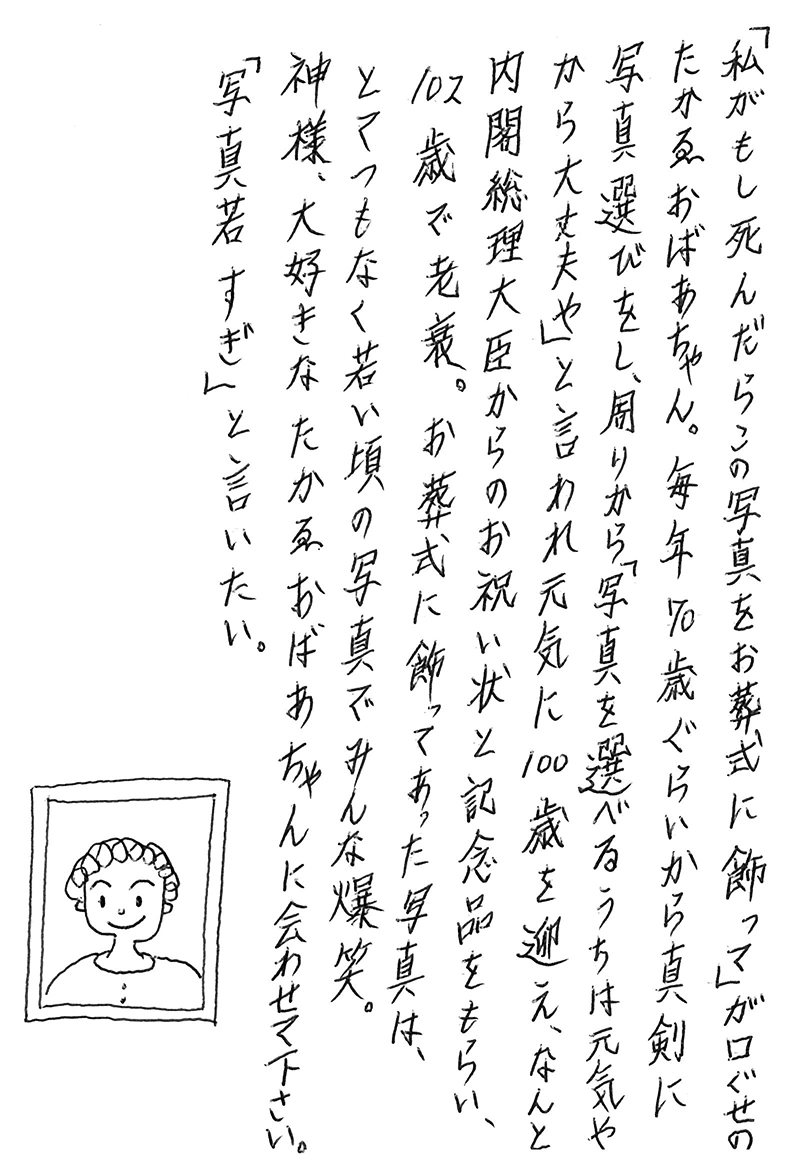 「私がもし死んだらこの写真をお葬式に飾って」が口ぐせの
たかゑおばあちゃん。毎年70歳ぐらいから真剣に
写真選びをし、周りから「写真を選べるうちは元気や
から大丈夫や」と言われ元気に100歳を迎え、なんと
内閣総理大臣からのお祝い状と記念品をもらい、
102歳で老衰。お葬式に飾ってあった写真は、
とてつもなく若い頃の写真でみんな爆笑。
神様、大好きなたかゑおばあちゃんに会わせて下さい。
「写真若すぎ」と言いたい。